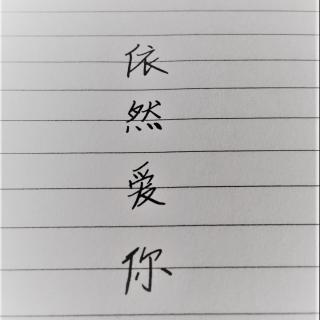 依然爱你